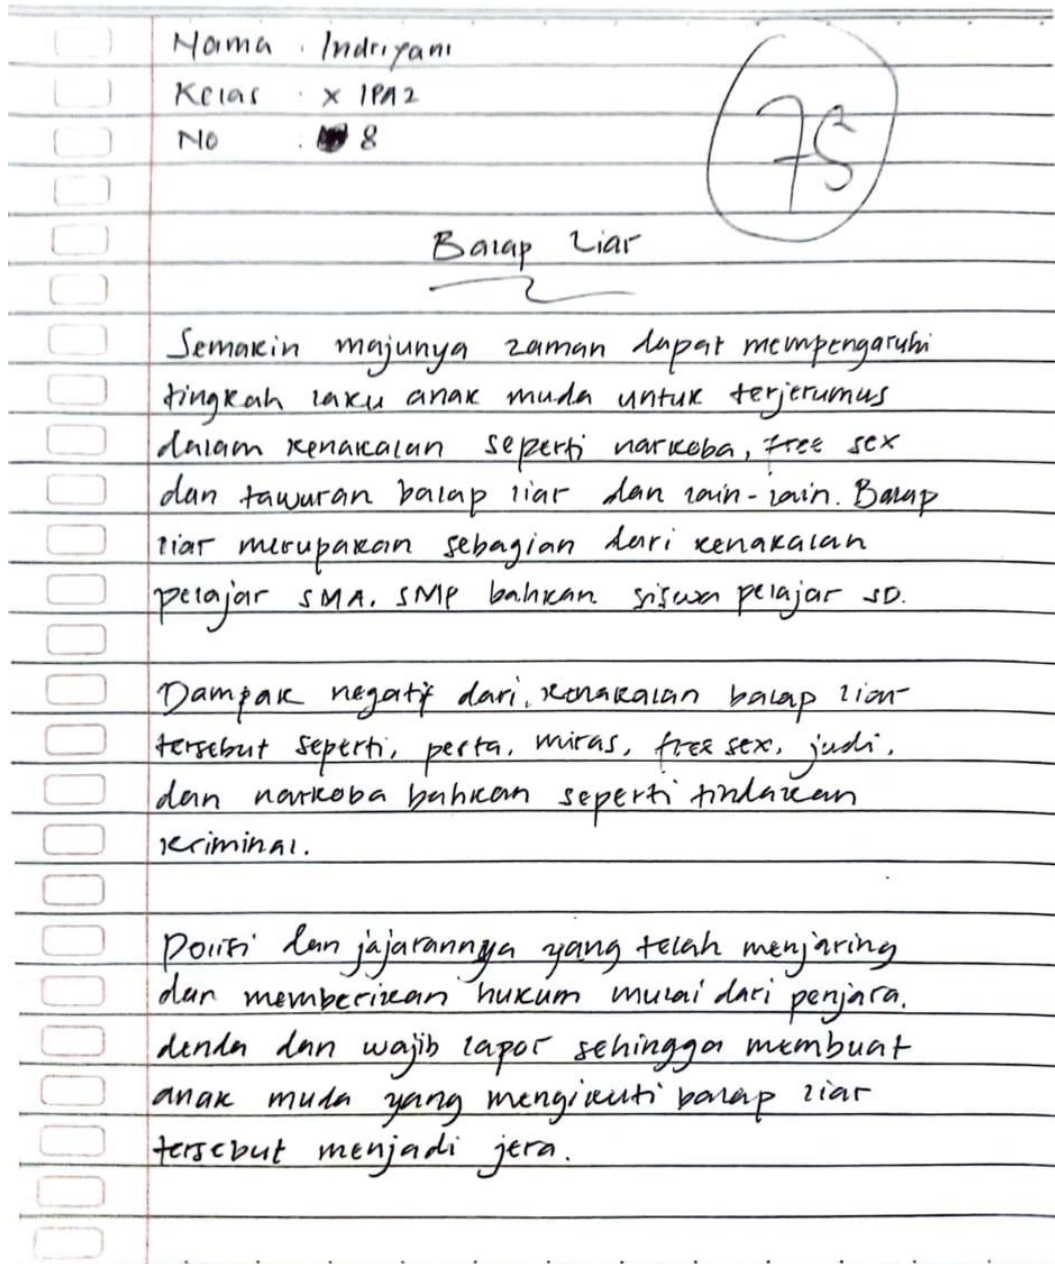 Nama : Indriyani
Kelas : X IPA2
No : 8
75
Balap Liar
Semakin majunya zaman dapat mempengaruhi
tingkah laku anak muda untuk terjerumus
dalam kenakalan seperti narkoba, free sex
dan tawuran balap liar dan lain-lain. Balap
liar merupakan sebagian dari kenakalan
pelajar SMA. SMP bahkan siswa pelajar SD.
Dampak negatif dari, kenakalan balap liar
tersebut seperti, perta, miras, free sex, judi,
dan narkoba bahkan seperti tindakan
kriminal.
Polisi dan jajarannya yang telah menjaring
dan memberikan hukum mulai dari penjara,
denda dan wajib lapor sehingga membuat
anak muda yang mengikuti balap liar
tersebut menjadi jera.